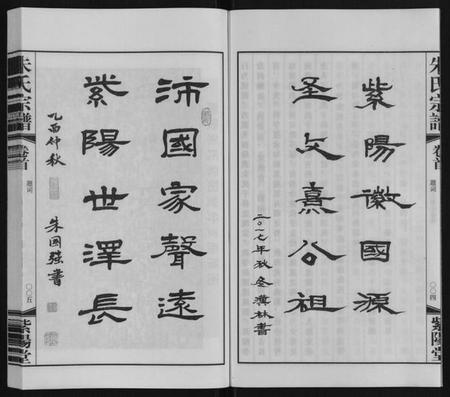 朱氏宗譜
卷首
題詞
〇〇四
紫陽堂
紫陽徽國源
圣文熹公祖
二〇一七年秋
林書
沛國家聲遠
紫陽世澤長
乙酉仲秋
朱国强書
朱氏宗譜
卷首
題詞
〇〇五
紫陽堂